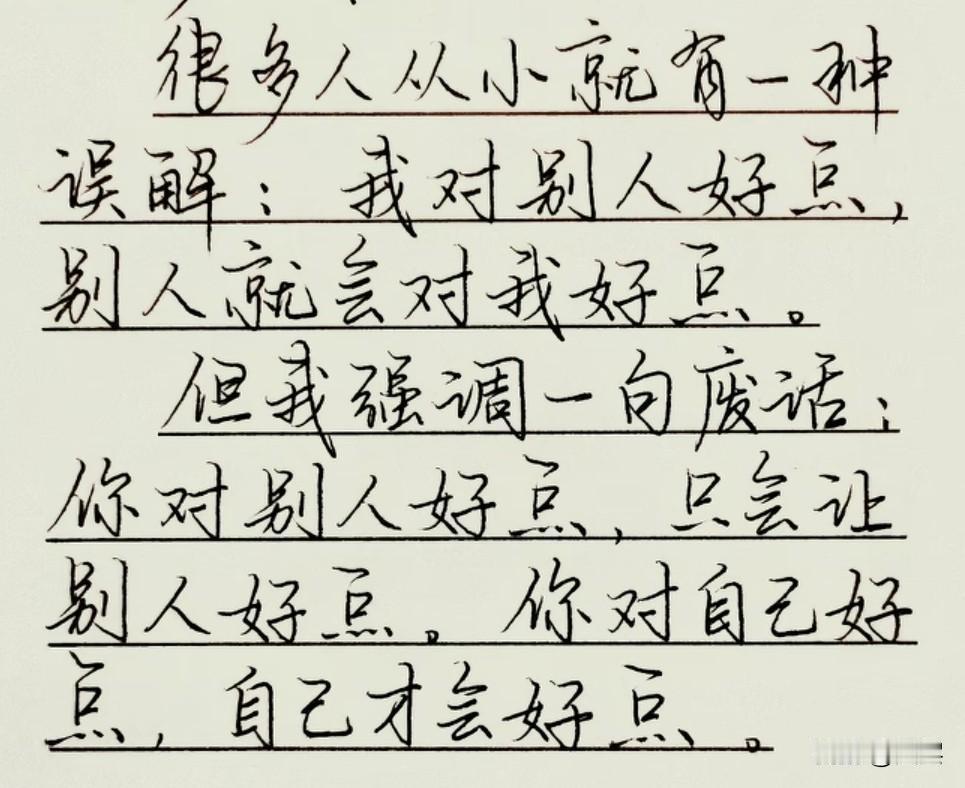 很多人从小就有一种
误解：我对别人好点，
别人就会对我好点。
但我强调一句废话：
你对别人好点，只会让
别人好点。你对自己好
点，自己才会好点。